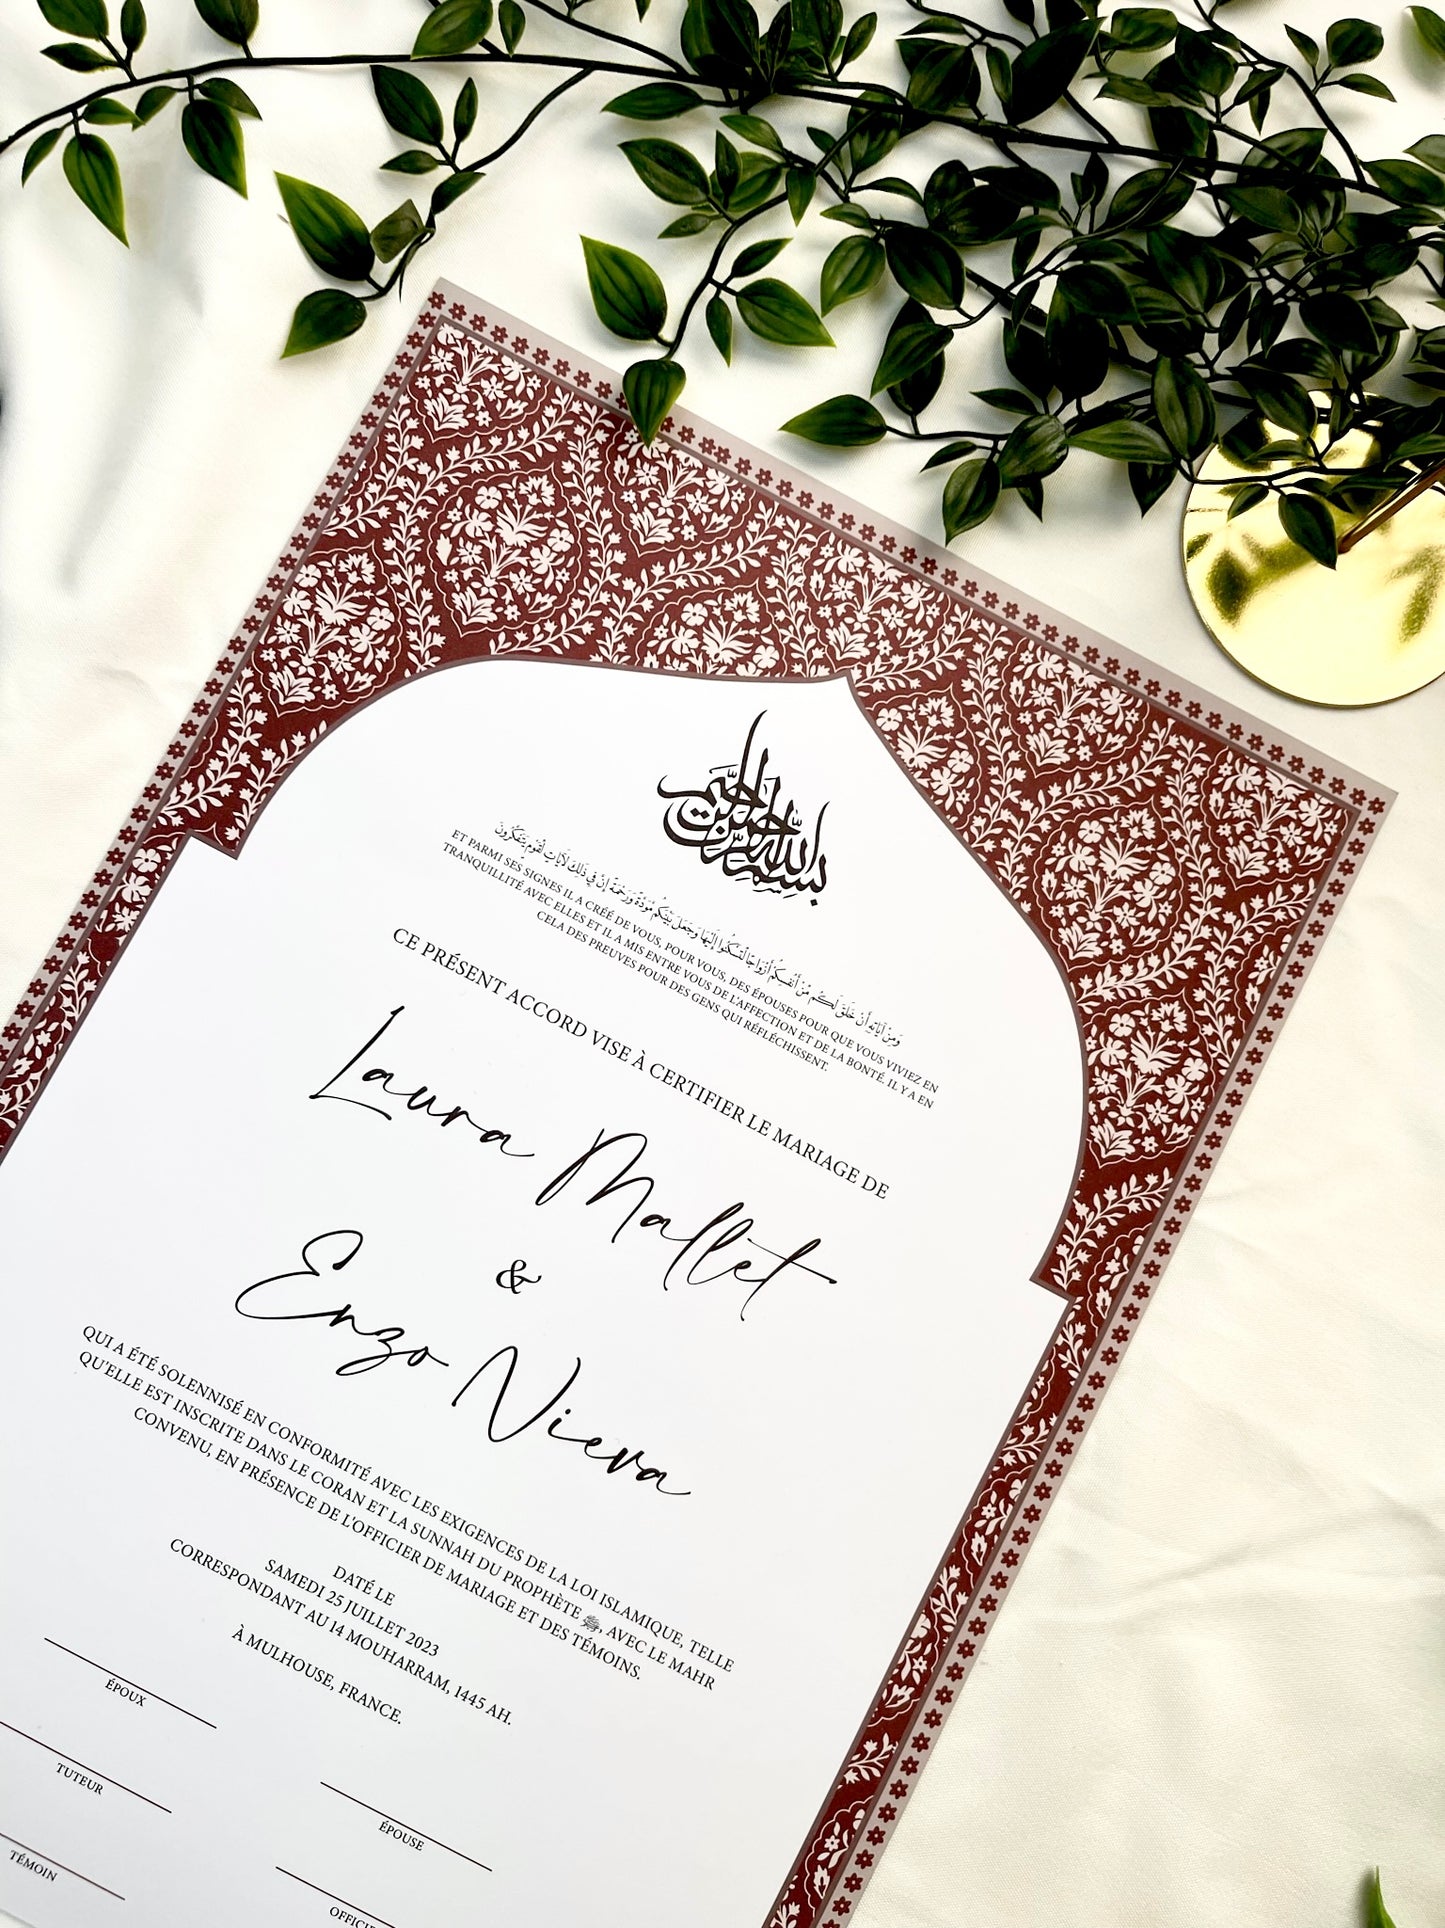 بسم الله الرحمن الرحيم
وَمِنْ آيَاتِهِ أَنْ خَلَقَ لَكُم مِّنْ أَنفُسِكُمْ أَزْوَاجًا لِّتَسْكُنُوا إِلَيْهَا وَجَعَلَ بَيْنَكُم مَّوَدَّةً وَرَحْمَةً إِنَّ فِي ذَلِكَ لَآيَاتٍ لِّقَوْمٍ يَتَفَكَّرُونَ
ET PARMI SES SIGNES IL A CRÉÉ DE VOUS, POUR VOUS, DES ÉPOUSES POUR QUE VOUS VIVIEZ EN
TRANQUILLITÉ AVEC ELLES ET IL A MIS ENTRE VOUS DE L'AFFECTION ET DE LA BONTÉ. IL Y A EN
CELA DES PREUVES POUR DES GENS QUI RÉFLÉCHISSENT.
CE PRÉSENT ACCORD VISE À CERTIFIER LE MARIAGE DE
Laura Mallet
&
Enzo Nieva
QUI A ÉTÉ SOLENNISÉ EN CONFORMITÉ AVEC LES EXIGENCES DE LA LOI ISLAMIQUE, TELLE
QU'ELLE EST INSCRITE DANS LE CORAN ET LA SUNNAH DU PROPHÈTE ﷺ, AVEC LE MAHR
CONVENU, EN PRÉSENCE DE L'OFFICIER DE MARIAGE ET DES TÉMOINS.
DATÉ LE
SAMEDI 25 JUILLET 2023
CORRESPONDANT AU 14 MOUHARRAM, 1445 AH.
À MULHOUSE, FRANCE.
ÉPOUX
ÉPOUSE
TUTEUR
TÉMOIN